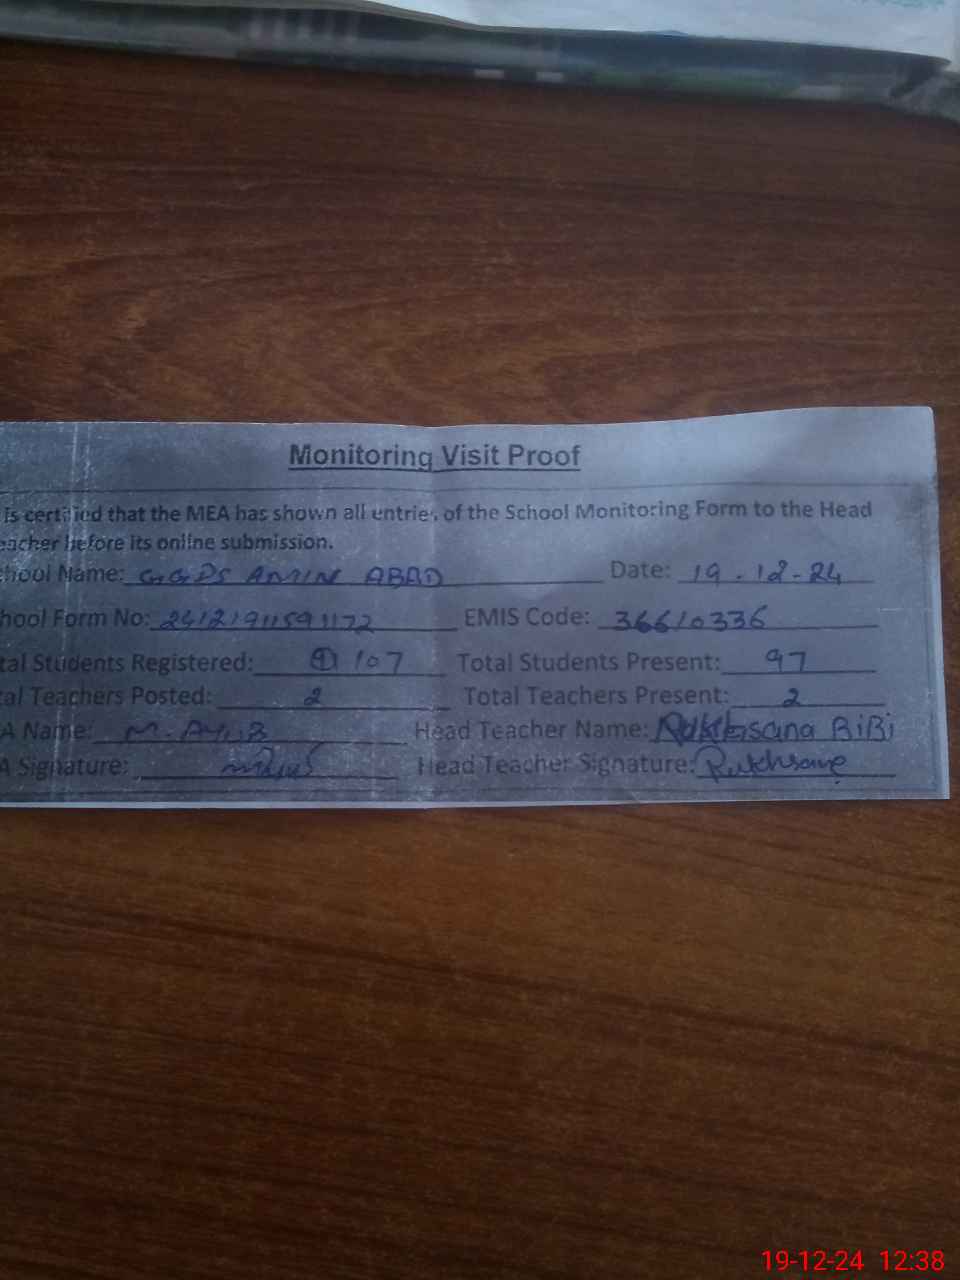 Monitoring Visit Proof
is certified that the MEA has shown all entries of the School Monitoring Form to the Head
eacher before its online submission.
hool Name: GGPS AMIN ABAD Date: 19-12-24
hool Form No: EMIS Code: 36610336
tal Students Registered: 107 Total Students Present: 97
tal Teachers Posted: 2 Total Teachers Present: 2
A Name: M. AYUB Head Teacher Name: Rukhsana BiBi
A Signature: Head Teacher Signature: Rukhsana
19-12-24 12:38